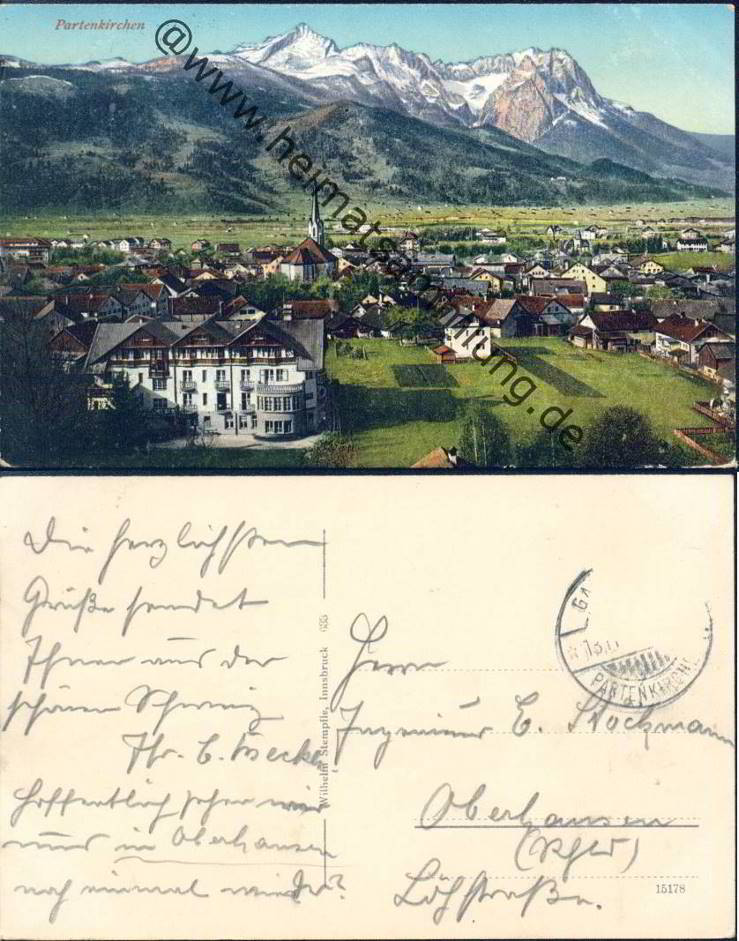 Partenkirchen
@www.heimatsammlung.de
Die herzlichsten
Grüße sendet
Ihnen aus der
schönen Schweiz
Ihr. C.
Hoffentlich sehen wir
uns in Oberhausen
noch einmal wieder?
Wilhelm Stempfle, Innsbruck 035
GA
PARTENKIRCHE
Herrn
Ingenieur E. Stockmann
Oberhausen
(Rhld)
Lothstraße.
15178